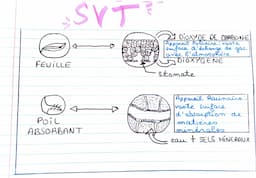 SVT
DIOXYDE DE CARBONE
Appareil foliaire : vaste
surface d'échange de gaz
avec l'atmosphère
DIOXYGÈNE
FEUILLE
stomate
Appareil Racinaire :
vaste surface
d'absorption de
matières
minérales
POIL
ABSORBANT
eau + SELS MINÉRAUX